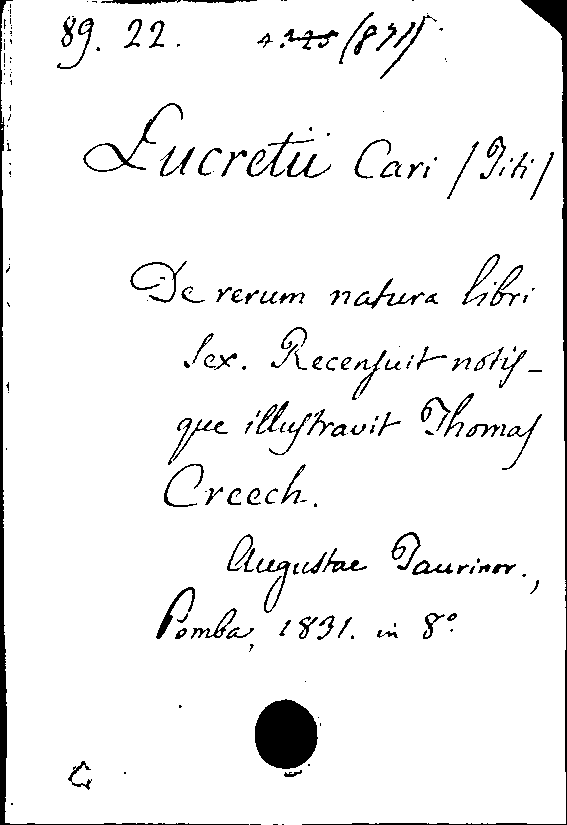 89. 22. (871)
Lucretii Cari /Titi/
De rerum natura libri
sex. Recensuit notis-
que illustravit Thomas
Creech.
Augustae Taurinor.,
Pomba, 1831. in 8º